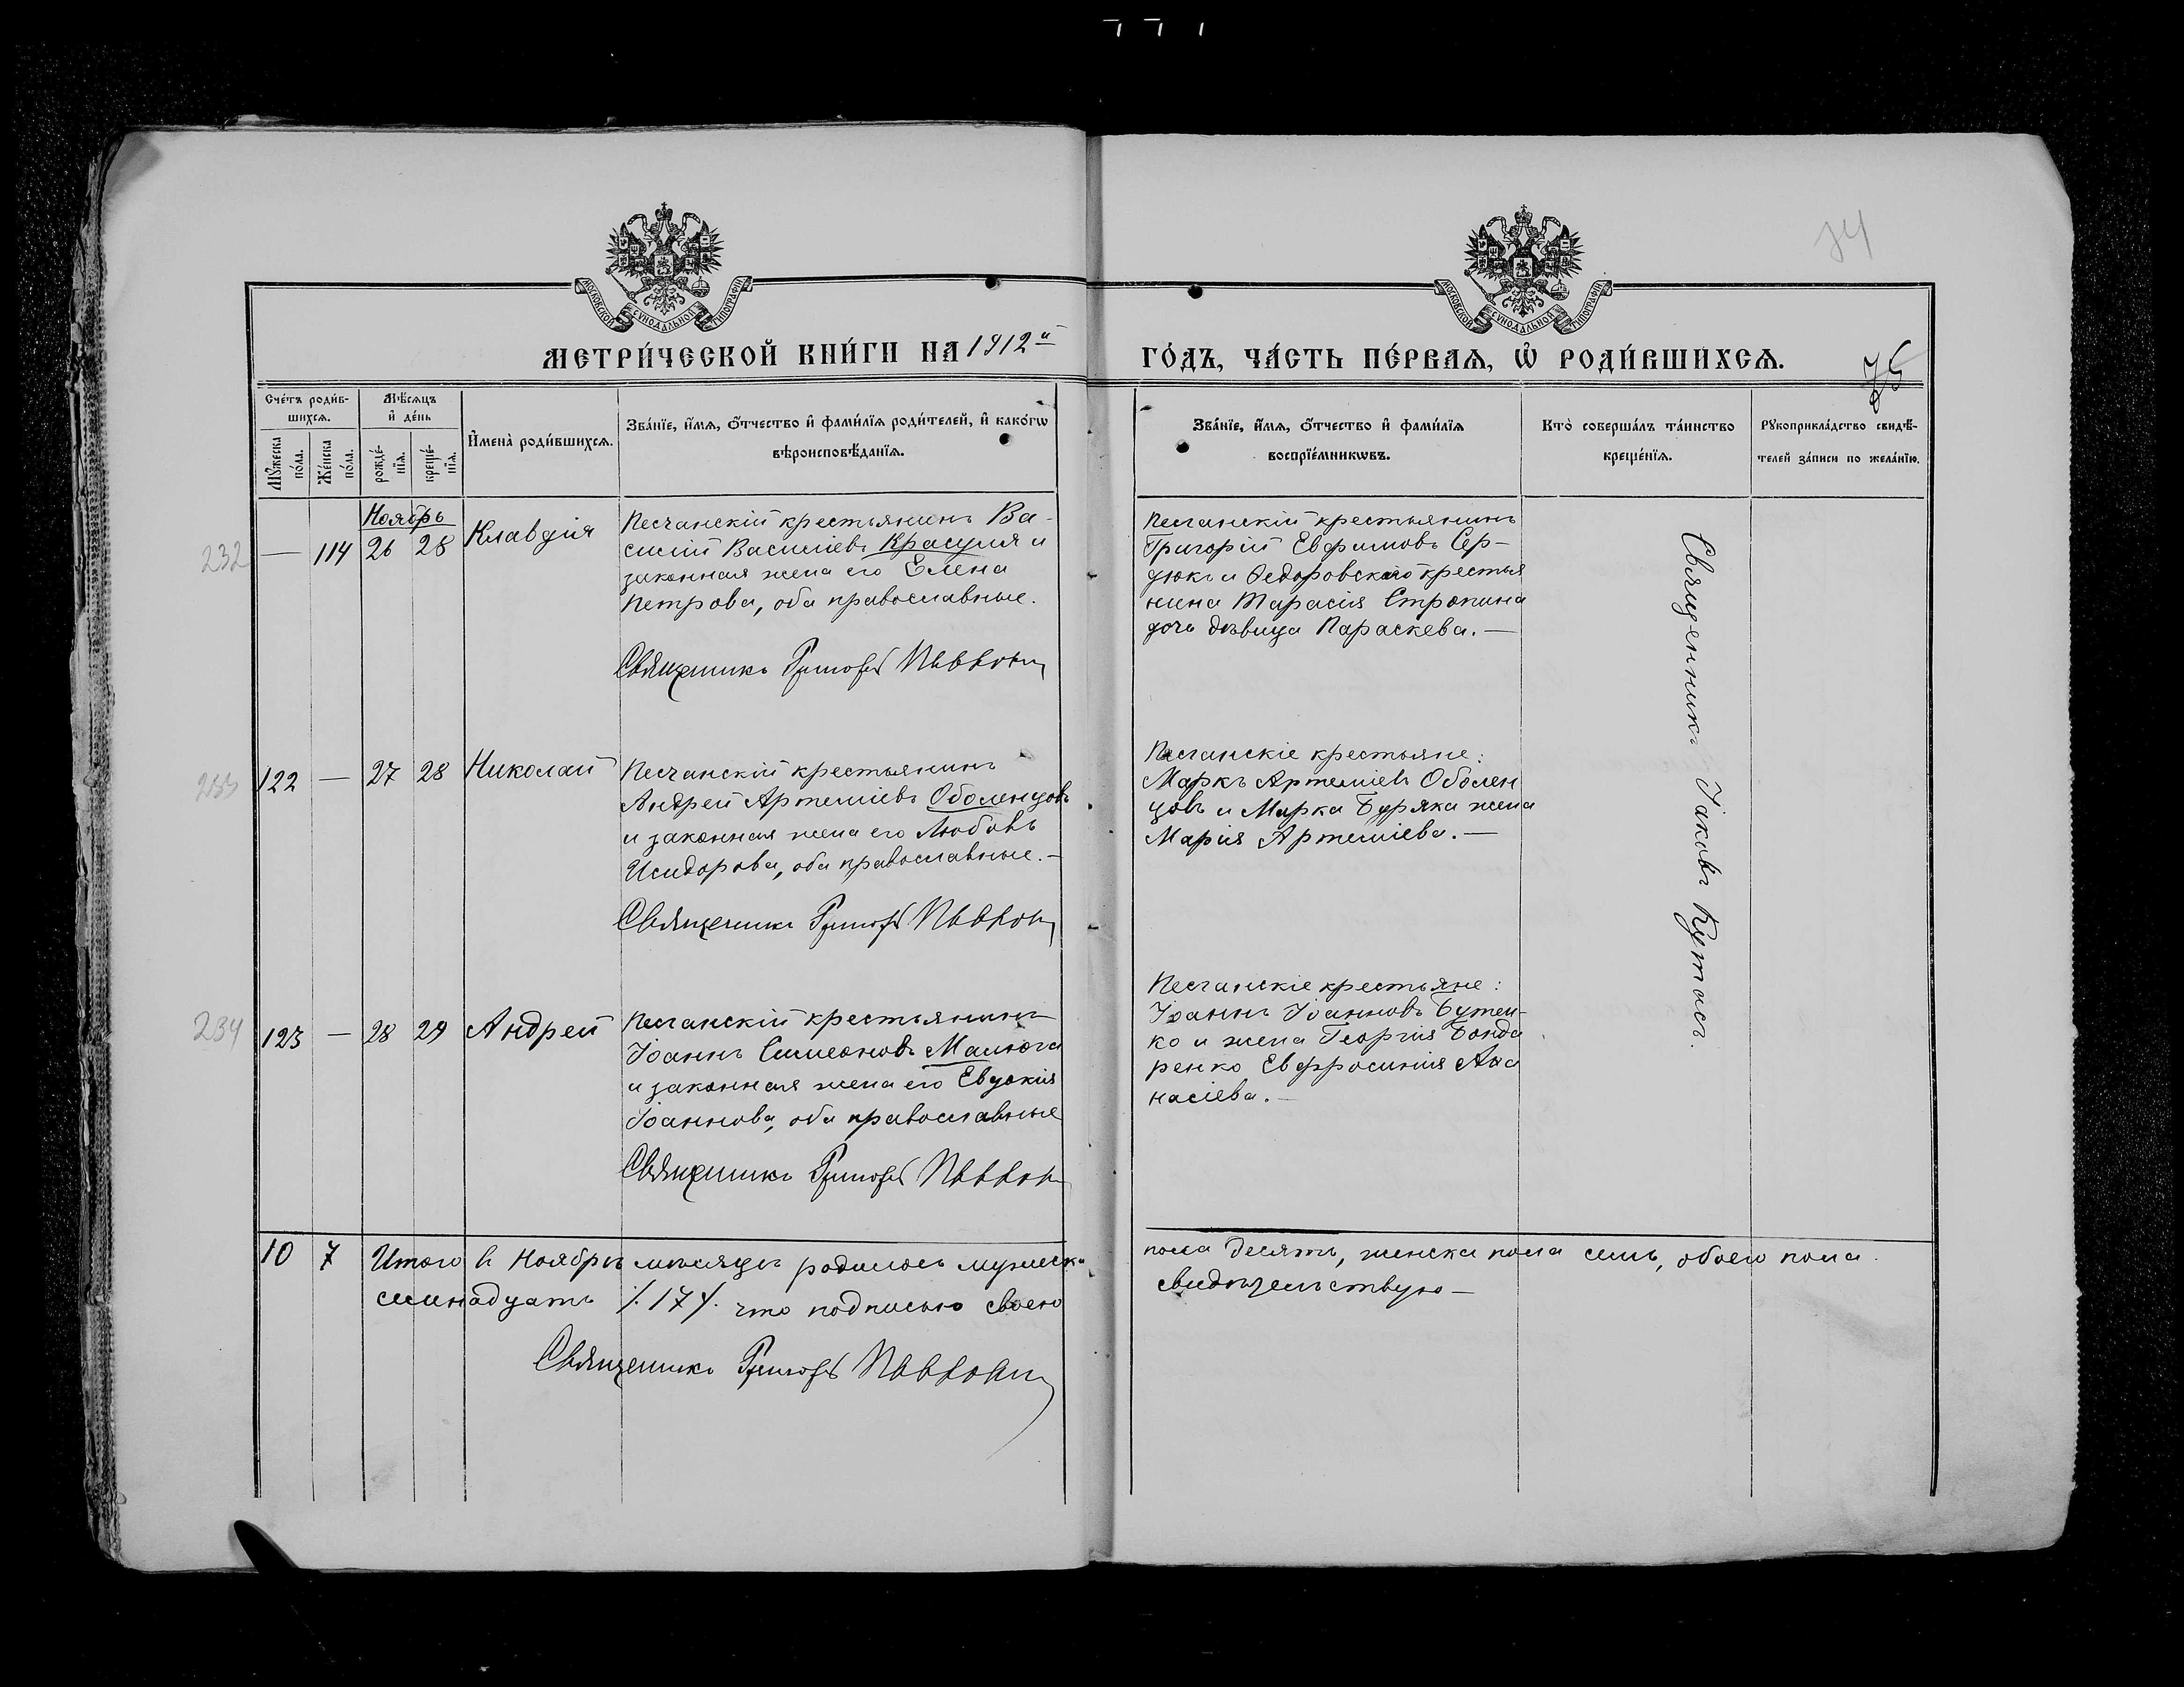 74
МОСКОВСКОЙ СѴНОДАЛЬНОЙ ТИПОГРАФІИ
МОСКОВСКОЙ СѴНОДАЛЬНОЙ ТИПОГРАФІИ
МЕТРИ́ЧЕСКОЙ КНИ́ГИ НА 1912й
ГО́ДЪ, ЧА́СТЬ ПЕ́РВАѦ, Ѽ РОДИ́ВШИХСѦ.
75
Сче́тъ роди́в-
шихсѧ.
Мꙋ́жеска
по́ла.
Же́нска
по́ла.
Мѣ́сѧцъ
и҆ де́нь
рожде́-
нїѧ.
креще́-
нїѧ.
И҆мена̀ роди́вшихсѧ.
Зва́нїе, и҆́мѧ, ѻ҆́тчество и҆ фами́лїѧ роди́телей, и҆ како́гѡ
вѣроисповѣ́данїѧ.
Зва́нїе, и҆́мѧ, ѻ҆́тчество и҆ фами́лїѧ
воспрїе́мникѡвъ.
Кто̀ соверша́лъ та́инство
креще́нїѧ.
Рꙋкоприкла́дство свидѣ́-
телей за́писи по жела́нїю.
Ноябрь
232
— 114 26 28 Клавдія
Песчанскій крестьянинъ Ва-
силій Василіевъ Красуля и
законная жена его Елена
Петрова, оба православные.
Священникъ Григорій
Песчанскій крестьянинъ
Григорій Евфимовъ Сер-
дюкъ и Ѳедоровскаго крестья
нина Тарасія Стропина
дочь дѣвица Параскева.—
Священникъ Іаковъ Кутасъ.
233
122 — 27 28 Николай
Песчанскій крестьянинъ
Андрей Артеміевъ Оболенцовъ
и законная жена его Любовь
Исидорова, оба православные.—
Священникъ Григорій
Песчанскіе крестьяне:
Маркъ Артеміевъ Оболен
цовъ и Марка Буряка жена
Марія Артеміева.—
234
123 — 28 29 Андрей
Песчанскій крестьянинъ
Іоаннъ Симеоновъ Малюга
и законная жена его Евдокія
Іоаннова, оба православные
Священникъ Григорій
Песчанскіе крестьяне:
Іоаннъ Іоанновъ Бутен-
ко и жена Георгія Бонда
ренко Евфросинія Аѳа
насіева.—
10 7 Итого въ Ноябрѣ мѣсяцѣ родилось мужеска
пола десять, женска пола семь, обоего пола
семнадцать /.17/. что подписью своею
свидѣтельствую—
Священникъ Григорій